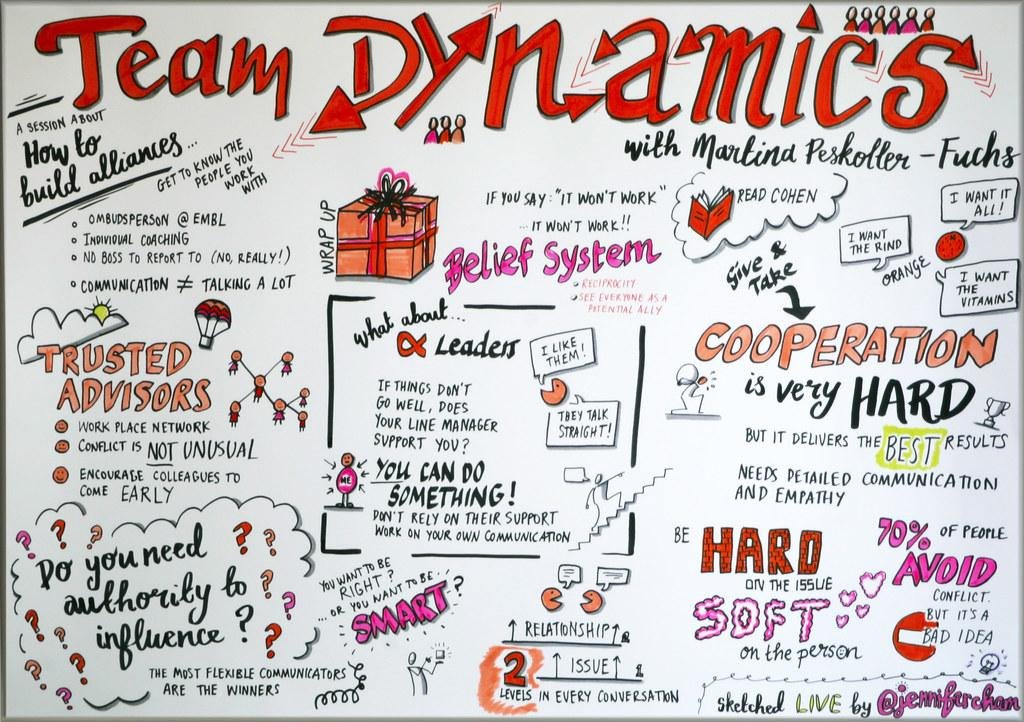 Team Dynamics
with Martina Peskoller - Fuchs
A SESSION ABOUT
How to
build alliances...
GET TO KNOW THE
PEOPLE YOU
WORK WITH
OMBUDSPERSON @ EMBL
INDIVIDUAL COACHING
NO BOSS TO REPORT TO (NO, REALLY!)
COMMUNICATION ≠ TALKING A LOT
TRUSTED
ADVISORS
WORK PLACE NETWORK
CONFLICT IS NOT UNUSUAL
ENCOURAGE COLLEAGUES TO
COME EARLY
Do you need
authority to
influence?
THE MOST FLEXIBLE COMMUNICATORS
ARE THE WINNERS
WRAP UP
IF YOU SAY: "IT WON'T WORK"
...IT WON'T WORK!!
Belief System
RECIPROCITY
SEE EVERYONE AS A
POTENTIAL ALLY
what about...
α Leaders
I LIKE
THEM!
THEY TALK
STRAIGHT!
IF THINGS DON'T
GO WELL, DOES
YOUR LINE MANAGER
SUPPORT YOU?
ME
YOU CAN DO
SOMETHING!
DON'T RELY ON THEIR SUPPORT
WORK ON YOUR OWN COMMUNICATION
YOU WANT TO BE
RIGHT?
...OR YOU WANT TO BE...
SMART?
RELATIONSHIP 2
ISSUE 1
2
LEVELS IN EVERY CONVERSATION
READ COHEN
Give &
Take
I WANT IT
ALL!
I WANT
THE RIND
ORANGE
I WANT
THE VITAMINS
COOPERATION
is very HARD
BUT IT DELIVERS THE BEST RESULTS
NEEDS DETAILED COMMUNICATION
AND EMPATHY
BE HARD
ON THE ISSUE
SOFT
on the person
70% OF PEOPLE
AVOID
CONFLICT.
BUT IT'S A
BAD IDEA
sketched LIVE by @jennifercham